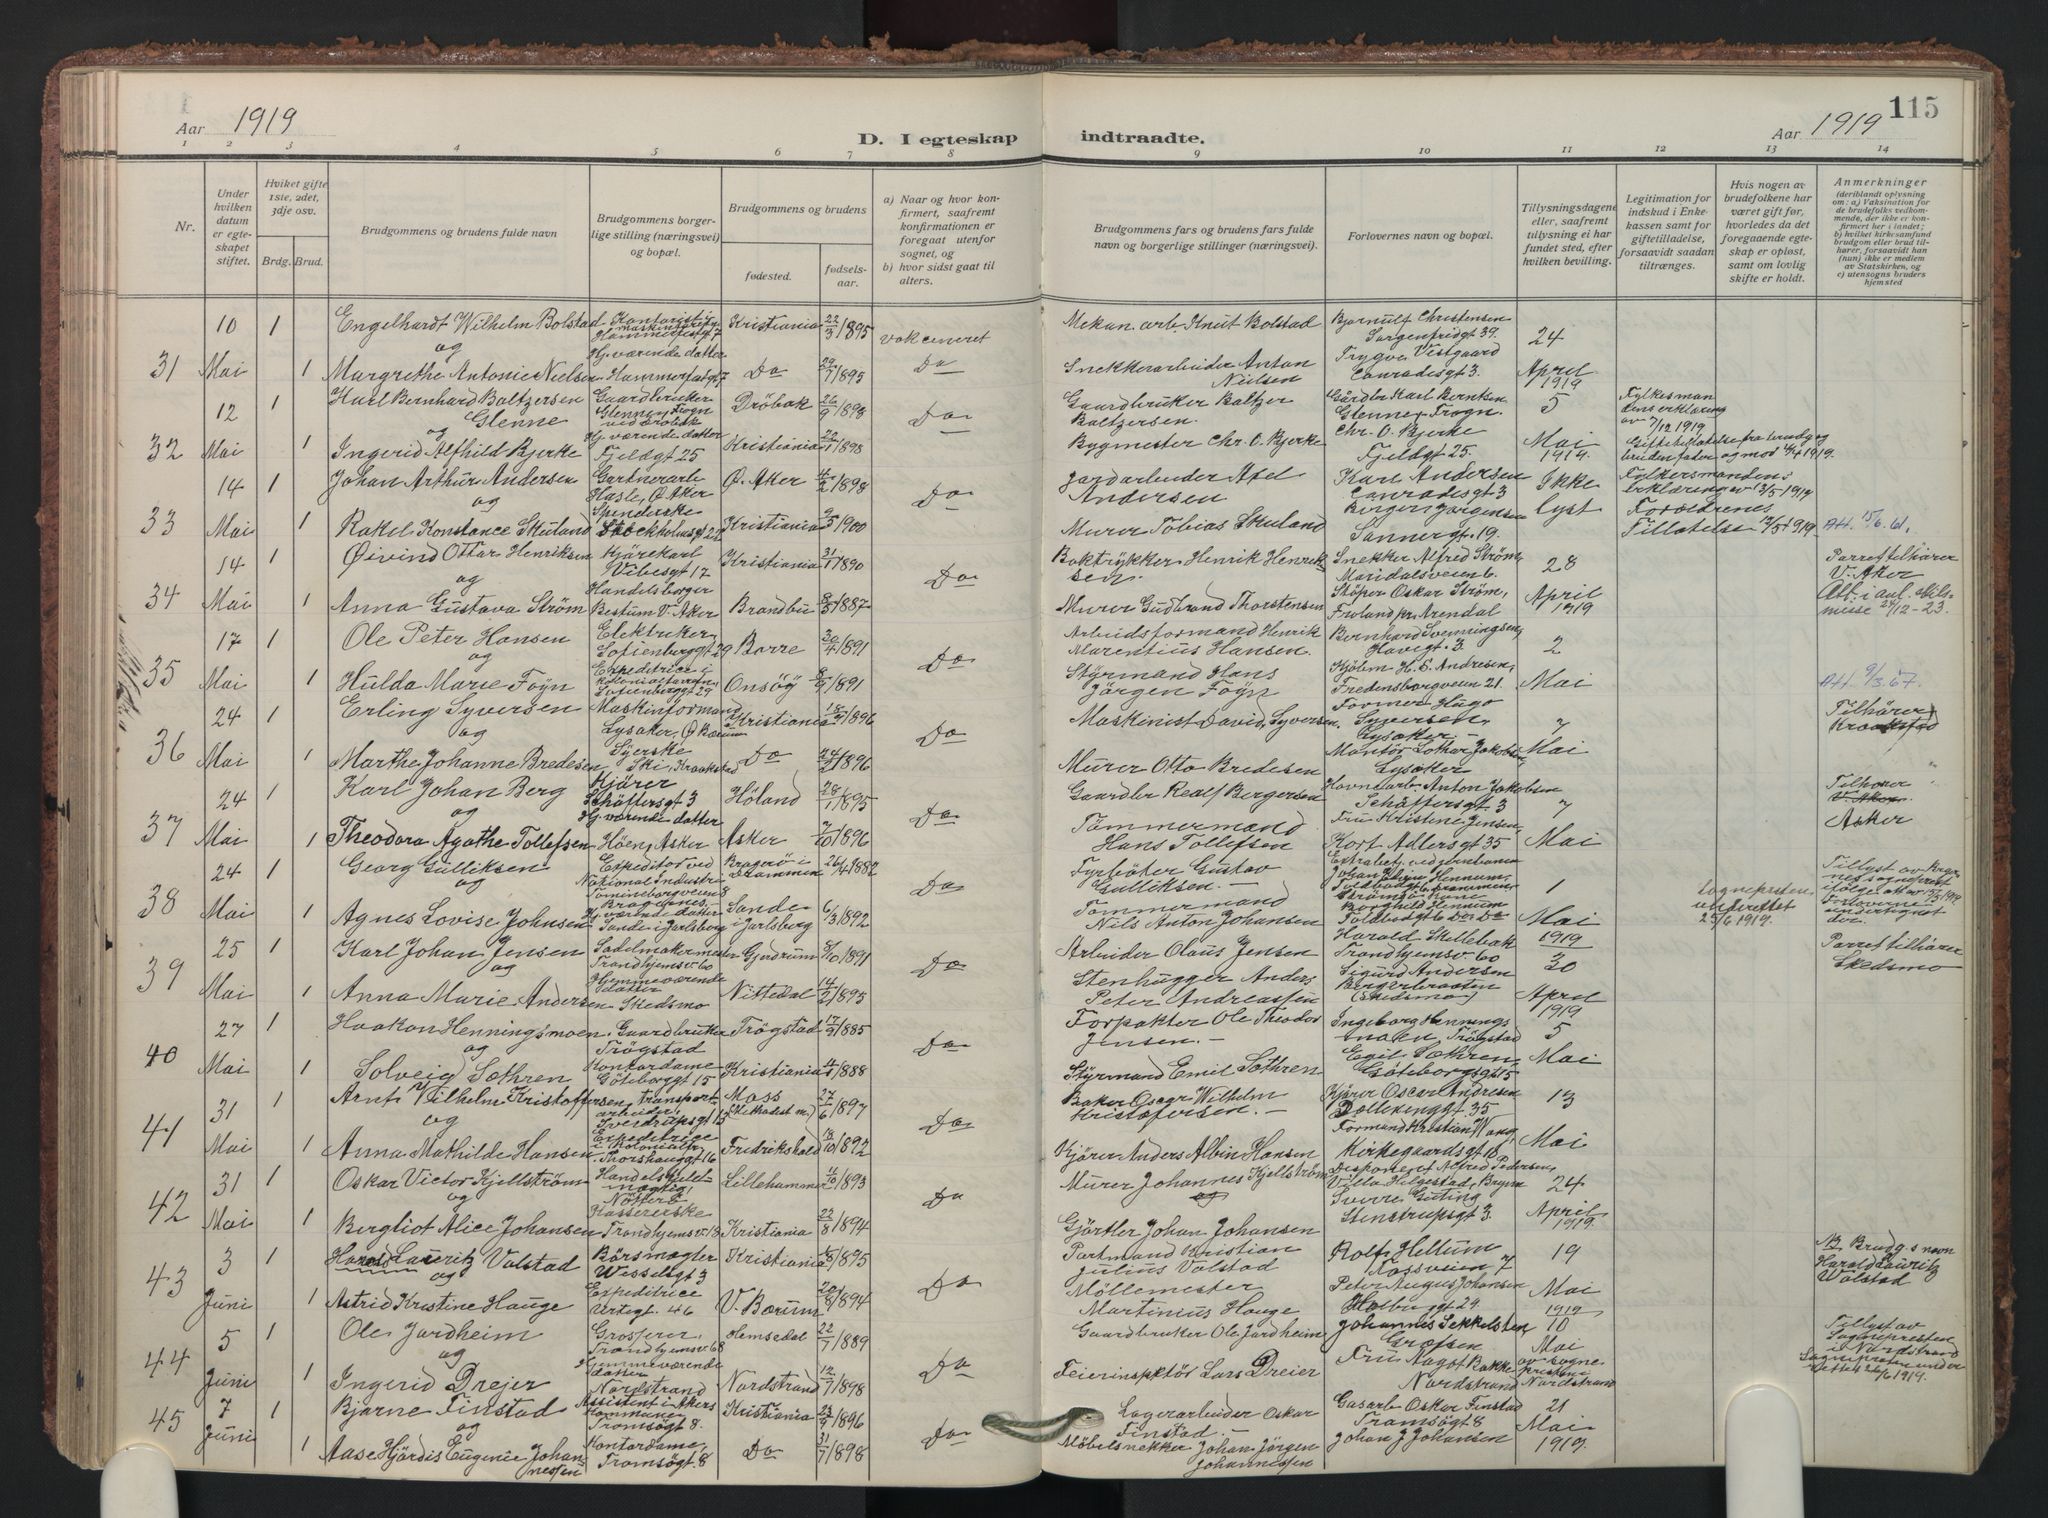 115
Aar 1919
D. I egteskap indtraadte.
Aar 1919
1 2 3 4 5 6 7 8 9 10 11 12 13 14
Nr.
Under hvilken datum er egteskapet stiftet.
Hviket gifte 1ste, 2det, 3dje osv.
Brdg. Brud.
Brudgommens og brudens fulde navn
Brudgommens borgerlige stilling (næringsvei) og bopæl.
Brudgommens og brudens
fødested.
fødselsaar.
a) Naar og hvor konfirmert, saafremt konfirmationen er foregaat utenfor sognet, og
b) hvor sidst gaat til alters.
Brudgommens fars og brudens fars fulde navn og borgerlige stillinger (næringsvei).
Forlovernes navn og bopæl.
Tillysningsdagene eller, saafremt tillysning ei har fundet sted, efter hvilken bevilling.
Legitimation for indskud i Enkekassen samt for giftetilladelse, forsaavidt saadan tiltrænges.
Hvis nogen av brudefolkene har været gift før, hvorledes da det foregaaende egteskap er opløst, samt om lovlig skifte er holdt.
Anmerkninger
(deriblandt oplysning om: a) Vaksination for de brudefolks vedkommende, der ikke er konfirmert her i landet; b) hvilket kirkesamfund brudgom eller brud tilhører, forsaavidt han (hun) ikke er medlem av Statskirken, og c) utensogns bruders hjemsted
31 10 Mai 1 Engelhardt Wilhelm Bolstad Kontorist Kristiania 22/3 1895 vakcineret Mekan. arb. Knut Bolstad Bjarnulf Christensen Sorgenfrigt 39. 24
og
1 Margrethe Antonie Nielsen Hj.værende datter Hammerfestgt 7 Do 29/7 1895 Do Snekkerarbeider Anton Nielsen Trygve Vestgaard Conradisgt 3. April 1919
32 12 Mai 1 Karl Bernhard Baltzersen Glenne Gaardbruker Glenne, Frogn ved Drøbak Drøbak 26/9 1898 Do Gaardbruker Baltzer Baltzersen. Gårdbr Karl Berntsen Glenne, Frogn. 5 Fylkesmandens erklæring
og
1 Ingerid Alfhild Bjerke Hj.værende datter Fjeldgt 25 Kristiania 1898 Bygmester Chr. O. Bjerke Chr. O. Bjerke Fjeldgt 25. Mai 1919.
33 14 Mai 1 Johan Arthur Andersen Gartnerarb Hasle, Ø. Aker Ø. Aker 4/2 1898 Do Jordarbeider Axel Andersen Karl Andersen Conradisgt 3 Ikke Fylkesmandens Erklæring av 13/5 1919
og
1 Rakel Konstance Skuland Spinderske Stockholmsgt 22 Kristiania 9/5 1900 Murer Tobias Skuland Berger Jørgensen Sannergt. 19. lyst Foreldrenes Tillatelse 1919. Att. 15/6. 61.
34 14 Mai 1 Øivind Ottar Henriksen Kjørekarl Vibesgt 17 Kristiania 31/1 1890 Do Boktrykker Henrik Henriksen. Snekker Alfred Strøm, Maridalsveien 6. 28 Parret tilhører V. Aker
og
1 Anna Gustava Strøm Handelsborger Bestum V. Aker Brandbu 8/8 1887 Murer Gudbrand Thorstensen Støper Oskar Strøm, Froland pr. Arendal April 1919
35 17 Mai 1 Ole Peter Hansen Elektriker Sofienberggt 29 Borre 30/4 1891 Do Arbeidsformand Henrik Marentius Hansen. Bernhard Svenningsen, Havigt. 3 2
og
1 Hulda Marie Foyn Expeditrice i kolonialforretn, Sofienberggt 29 Onsøy 8/9 1891 Styrmand Hans Jørgen Foyn Kjølm H. E. Andresen, Fredensborgveien 21. Mai Att. 9/3.67.
36 24 Mai 1 Erling Syversen Maskinformand Lysaker, Ø. Bærum Kristiania 18/9 1896 Do Maskinist David Syversen. Former Hugo Syversen, Lysaker. 7 Tilhører Kraakstad
og
1 Marthe Johanne Bredesen Syerske Ski, Kraakstad Do 24/2 1896 Murer Otto Bredesen Montør Lothar Jakobsen, Lysaker Mai
37 24 Mai 1 Karl Johan Berg Kjører Schäffersgt 3 Høland 28/1 1895 Do Gaardbr Realf Bergersen Havnearb Anton Jakobsen Schäffersgt. 3 7 Tilhører V. Aker Asker
og
1 Theodora Agathe Tollefsen Hj.værende datter Høen, Asker Asker 7/10 1896 Tømmermand Hans Tollefsen Fru Kristine Jensen, Kort Adlersgt 35 Mai
38 24 Mai 1 Georg Gulliksen Expeditør ved National Industri Bragernes. Bragerø i Drammen 26/4 1882 Do Fyrbøter Gustav Gulliksen. 1 Sognepresten underettet 25/6 1919.
og
1 Agnes Lovise Johnsen Hj.værende datter Sande i Jarlsberg Sande i Jarlsberg 6/3 1892 Tømmermand Nils Anton Johansen Borghild Hennum Toldbodgt 6 Mai 1919
39 25 Mai 1 Karl Johan Jensen Sadelmakermester Trondhjemsv. 60 Gjerdrum 8/10 1891 Do Arbeider Olaus Jensen Harald Skillebæk Trondhjemsv. 60 30 Parret tilhører Skedsmo
og
1 Anna Marie Andersen Hjemmeværende datter Skedsmo Nittedal 14/2 1895 Stenhugger Anders Peter Andreassen Sigurd Andersen Bergerbraaten (Skedsmo) April 1919
40 27 Mai 1 Haakon Henningsmoen Gaardbruker Trøgstad Trøgstad 17/9 1885 Do Forpakter Ole Theodor Jensen. Ingeborg Henningsmoen, Trøgstad 5
og
1 Solveig Sæthren Kontordame Gøteborggt 15 Kristiania 4/8 1888 Styrmand Emil Sæthren Egil Sæthren, Gøteborgsgt 15 Mai
41 31 Mai 1 Arnt Vilhelm Kristoffersen Transportarbeider, Sverdrupsgt 13 Moss 27/6 1897 Do Baker Oscar Wilhelm Kristofersen. Kjører Oscar Andresen 35 13
og
1 Anna Mathilde Hansen Expeditrice Thorshauggt 16 Fredrikshald 13/10 1892 Kjører Anders Albin Hansen Formand Kristian Wang, Kirkegaardsgt 18 Mai
42 31 Mai 1 Oskar Victor Kjellstrøm Handelsfuldmægtig, Nøtterø Lillehammer 4/10 1893 Do Murer Johannes Kjellstrøm Disponent Alfred Pedersen, Villa Helgestad, Bryn 24
og
1 Bergliot Alice Johansen Kassererske Trondhjemsv. 13 Kristiania 23/8 1894 Gjørtler Johan Johansen Sverre Guting Stenstrupsgt 3. April 1919.
43 3 Juni 1 Harald Lauritz Valstad Børsmægler Wesselsgt 3 Kristiania 1895 Do Portmand Kristian Julius Valstad Rolf Hellum Kossveien 7 19 NB Brudg.s navn Harald Lauritz Valstad
og
1 Astrid Kristine Hauge Expeditrice Urtegt. 46 V. Bærum 20/8 1894 Møllemester Martinius Hauge Peter August Johansen gt 24 Mai 1919
44 5 Juni 1 Ole Jordheim Grosserer, Trondhjemsv. 68 Hemsedal 22/7 1889 Do Gaardbruker Ole Jordheim Johannes Sekkelsten, Grefsen 10 Mai Tillyst av Sognepresten i Nordstrand
og
1 Ingerid Drejer Hjemmeværende datter Nordstrand Nordstrand 12/7 1898 Feierinspektør Lars Dreier Fru Aagot Bakke Nordstrand av sogne presten i Nordstrand
45 7 Juni 1 Bjarne Finstad Assistent i Akers Kommune Tromsøgt 8. Kristiania 23/9 1896 Do Lagerarbeider Oskar Finstad. Gasarb. Oskar Finstad Tromsøgt 8 21
og
1 Aase Hjördis Eugenie Johannessen Kontordame, Tromsøgt. 8 Do 31/7 1898 Møbelsnekker Johan Jørgen Johannessen Johan J Johansen Mai 1919.